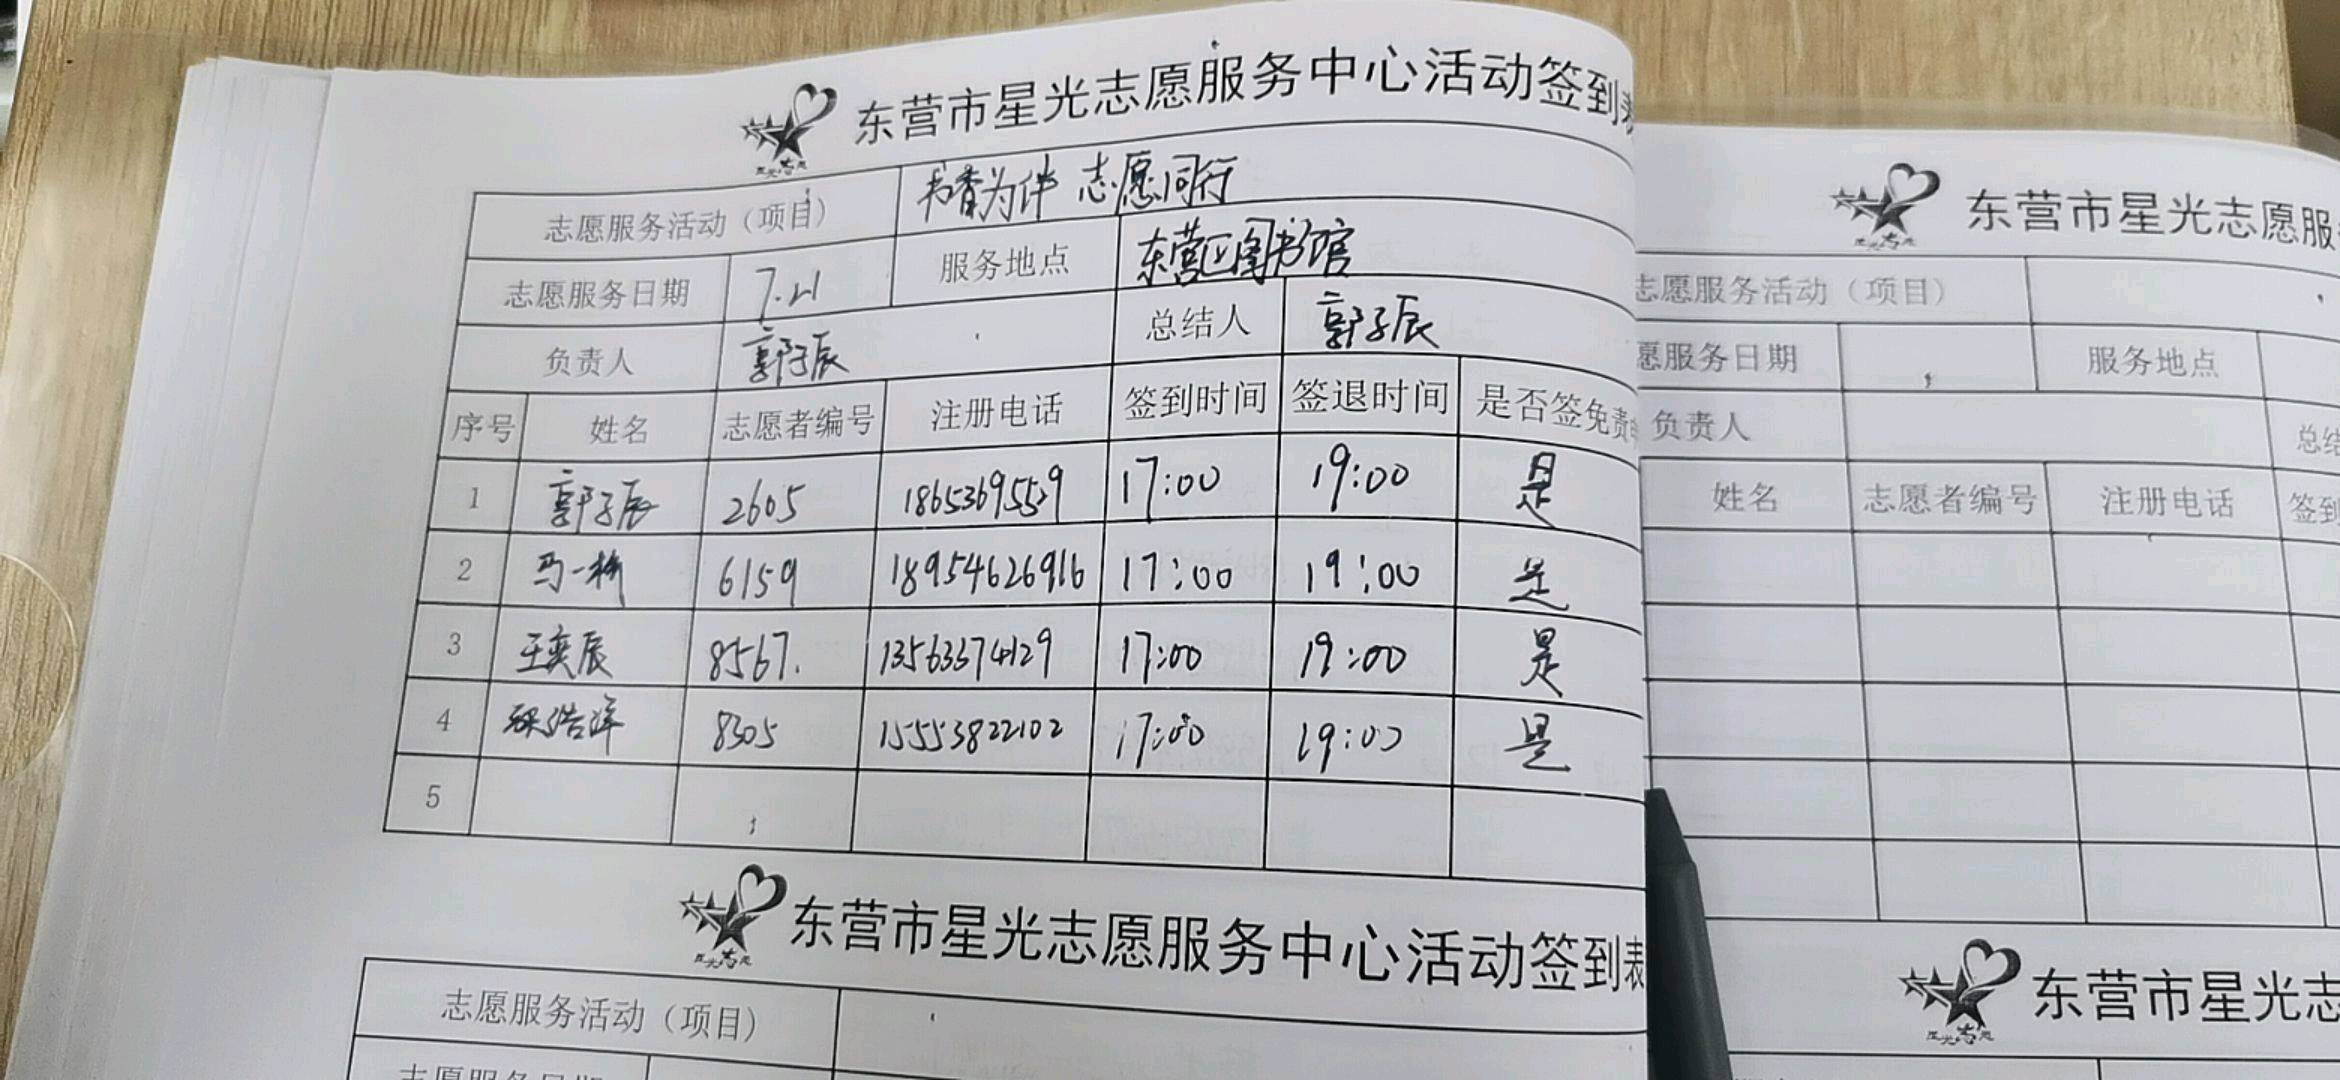 东营市星光志愿服务中心活动签到表
志愿服务活动（项目） 书香为伴 志愿同行
志愿服务日期 7.21 服务地点 东营区图书馆
负责人 郭子辰 总结人 郭子辰
序号 姓名 志愿者编号 注册电话 签到时间 签退时间 是否签免责
1 郭子辰 2605 18653695529 17:00 19:00 是
2 马一 6159 18954626916 17:00 19:00 是
3 王奕辰 8567. 13563374129 17:00 19:00 是
4 浩洋 8305 15553822102 17:00 19:00 是
5
东营市星光志愿服务中心活动签到表
志愿服务活动（项目）
志愿服务日期
东营市星光志愿服
志愿服务活动（项目）
愿服务日期 服务地点
负责人 总结
姓名 志愿者编号 注册电话 签到
东营市星光志